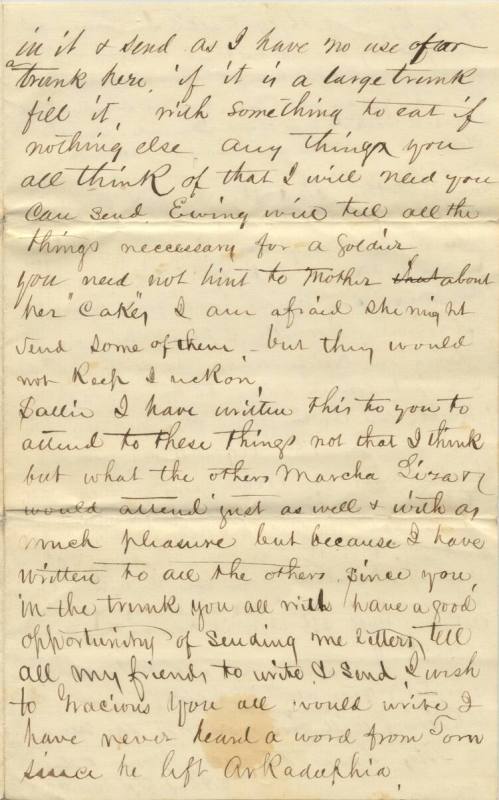 in it & send as I have no use of a
trunk here, if it is a large trunk
fill it, with something to eat if
nothing else any things you
all think of that I will need you
can send. Ewing will tell all the
things neccessary for a soldier
you need not hint to Mother about
her "cakes" I am afraid she might
send some of them, - but they would
not keep I reckon,
Sallie I have written this to you to
attend to these things not that I think
but what the others Marcha Liza &
would attend just as well & with as
much pleasure but because I have
written to all the others, since you,
in the trunk you all will have a good
opportunity of sending me letters, tell
all my friends to write & send, I wish
to Gracious you all would write I
have never heard a word from Tom
since he left Arkadelphia,